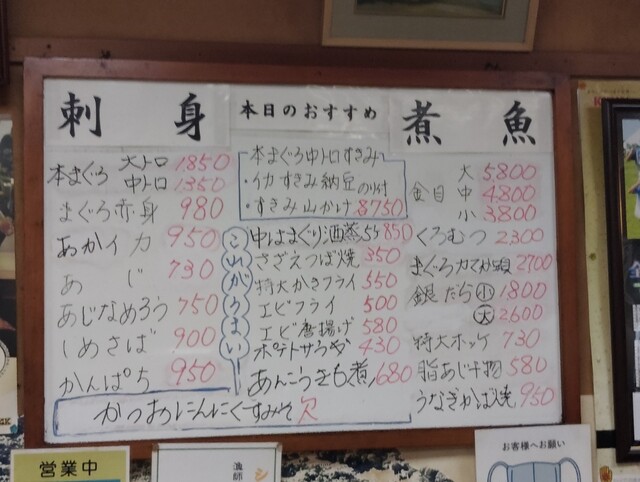 刺身
本日のおすすめ
煮魚
本まぐろ 大トロ 1,850
中トロ 1350
まぐろ赤身 980
あかイカ 950
あじ 730
あじなめろう 750
しめさば 900
かんぱち 950
かつおにんにくすみそ 欠
本まぐろ中トロすきみ
・イカすきみ納豆のり付
・すきみ山かけ 750
これがうまい
中はまぐり酒蒸し 850
さざえつぼ焼 350
特大かきフライ 550
エビフライ 500
エビ唐揚げ 580
ポテトサラダ 430
あんこうきも煮 680
金目 大 5800
中 4,800
小 3,800
くろむつ 2300
まぐろカマ 2700
銀だら 小 1800
大 2600
特大ホッケ 730
脂あじ干物 580
うなぎかば焼 950
営業中
漁師
お客様へお願い